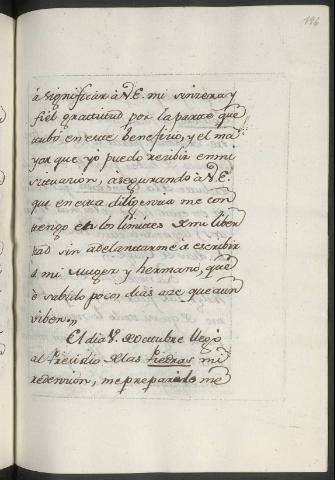 186
à significar à V.E. mi sinzera y
fiel gratitud por la parte que
tubo en este benefizio, y el ma
yor que yó puedo rezibir en mi
situazión, asegurando à V.E.
que en esta diligenzia me con
tengo en los limites de mi liber
tad sin adelantarme à escribir
à mi Muger y hermano, que
è sabido pocos dias aze que aun
viben.,,
El dia V. de Octubre llegò
al Presidio de las Piedras mi
redenzión, me preparè de me